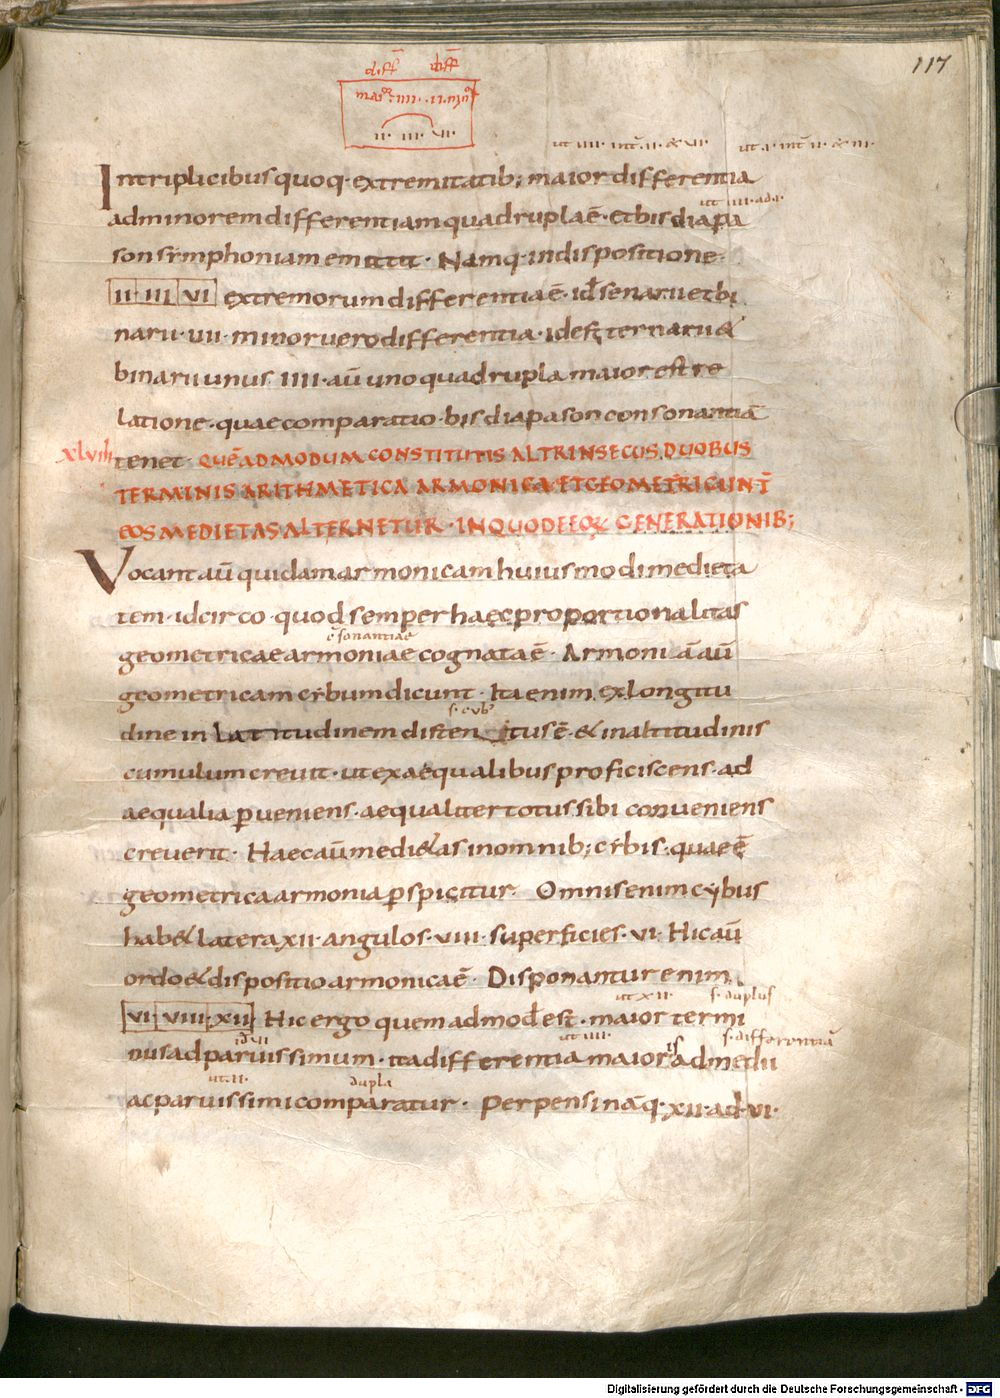 117
diff̄ diff̄
maior IIII · II · min
II · III · VI ·
ut IIII · int̄ · II · & VI · ut · I · int̄ II · & III ·
Intriplicibus quoq· extremitatib; maior differentia
ut IIII · ad · I ·
adminorem differentiam quadruplaē · Et bis diapa
son sýmphoniam emittit · Namq· indispositione ·
II · III · VI extremorum differentiaē · id̄ senarii et bi
narii · IIII · minor uero differentia · idest ternarii &
binarii unus · IIII · aū uno quadrupla maior est re
latione · quae comparatio · bis diapason consonantiā
XLVIII tenet · QUĒADMODUM CONSTITUTIS ALTRINSECUS DUOBUS
TERMINIS ARITHMETICA ARMONICA ET GEOMETRICA INT̄
EOS MEDIETAS ALTERNETUR · INQUO DE EOR̨ GENERATIONIB;
Vocant aū quidam armonicam huiusmodi medieta
tem · idcirco · quod semper haec proportionalitas
c̄sonantiae
geometricae armoniae cognataē · Armoniā aū
geometricam cybum dicunt · Ita enim ex longitu
s · cyb'
dine in latitudinem distentusē · & inaltitudinis
cumulum creuit · ut exaequalibus proficiscens · ad
aequalia p̱ueniens · aequaliter totus sibi conueniens
creuerit · Haec aū medi&as inomnib; cybis · quaeē
geometrica armonia p̱spicitur · Omnis enim cybus
hab& latera XII · angulos · VIII · superficies · VI · Hic aū
ordo & dispositio armonicaē · Disponantur enim
ut XII · s · duplus
VI · VIII · XII Hic ergo quem admod̄ est · maior termi
id̄ VI ut IIII · is s · differentiā
nus ad paruissimum · ita differentia maior ad medii
ut · II · dupla
ac paruissimi comparatur · Perpensi nāq· XII · ad · VI ·
Digitalisierung gefördert durch die Deutsche Forschungsgemeinschaft - DFG